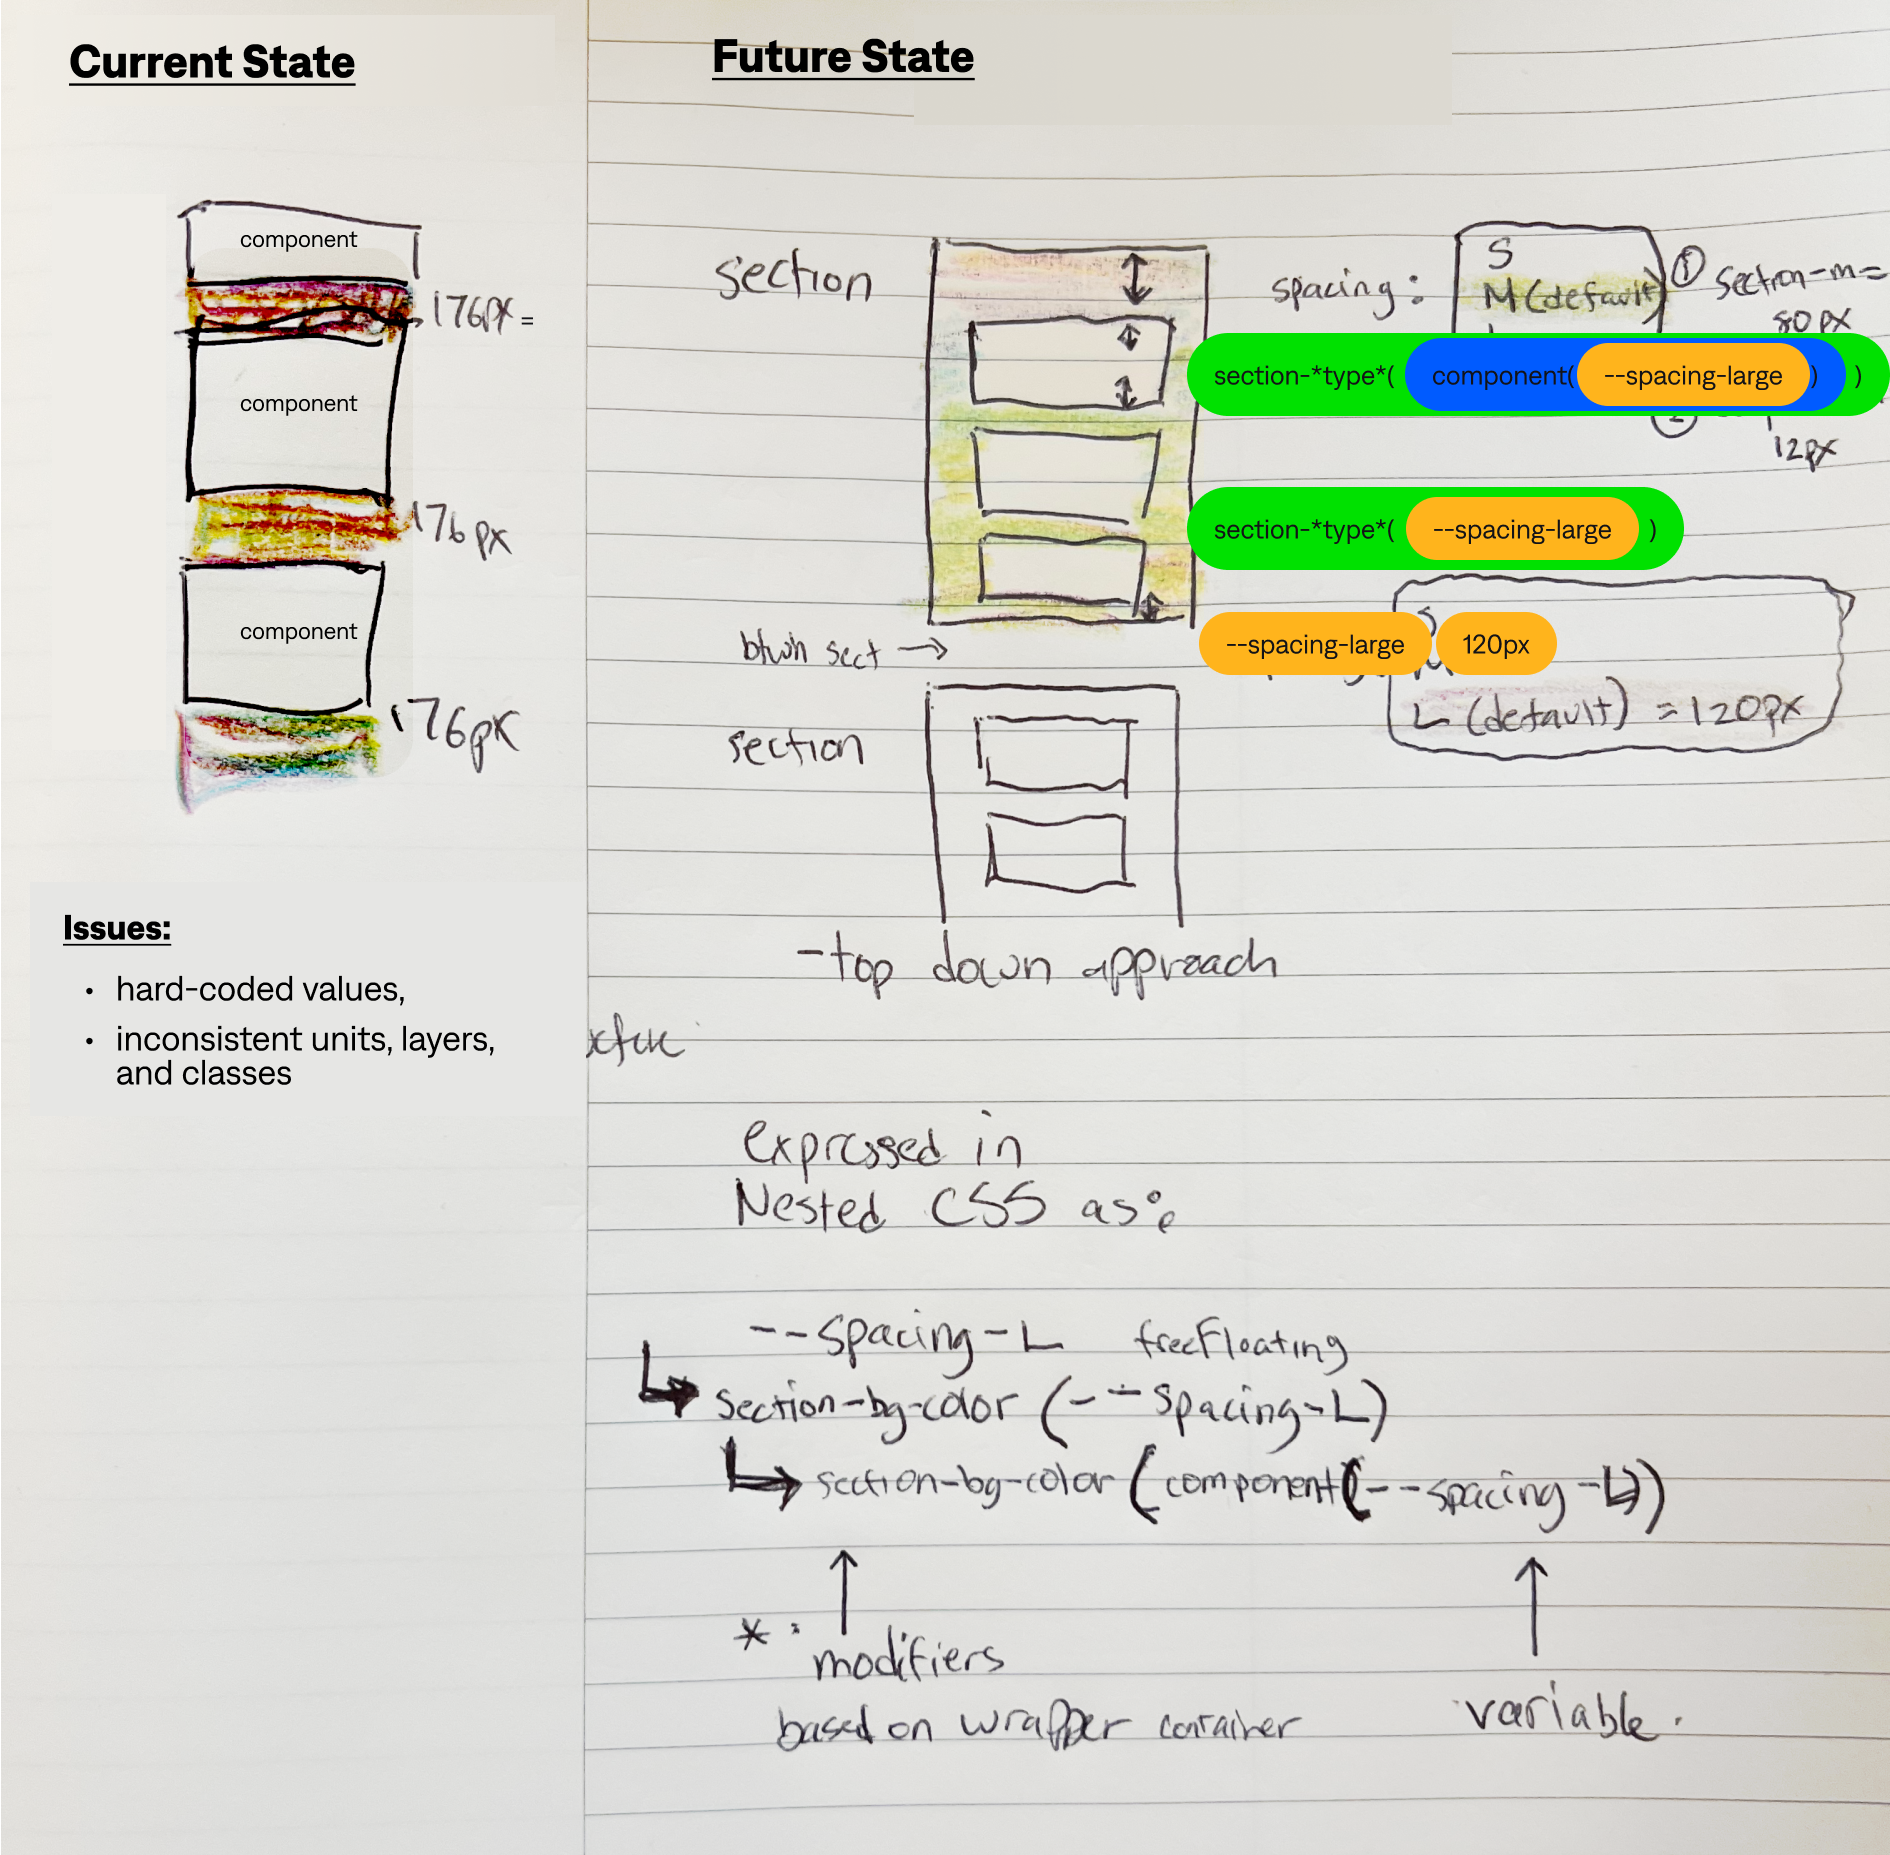 Current State
component
176px =
component
176px
component
176px
Issues:
• hard-coded values,
• inconsistent units, layers,
and classes
Future State
section
spacing:
S
M (default)
① section-m=
80px
section-*type*( component( --spacing-large ) )
②
12px
section-*type*( --spacing-large )
btwn sect →
--spacing-large 120px
S
M
L (default) = 120px
section
-top down approach
expressed in
Nested CSS as:
--spacing-L freeFloating
section-bg-color (--spacing-L)
section-bg-color (component(--spacing-L))
* :
modifiers
based on wrapper container
variable.